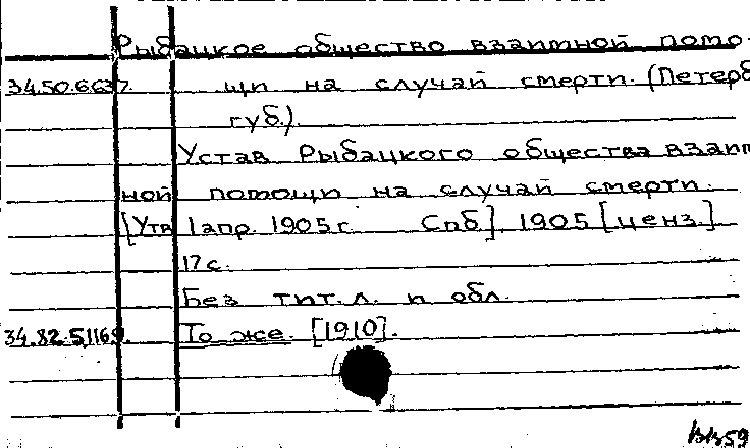 Рыбацкое общество взаимной помо-
34.50.6637. щи на случай смерти. (Петерб
губ.)
Устав Рыбацкого общества взаим
ной помощи на случай смерти.
[Утв 1 апр. 1905 г. Спб] 1905 [ценз.]
17 с.
Без тит. л. и обл.
34.82.5.1169. То же. [1910].